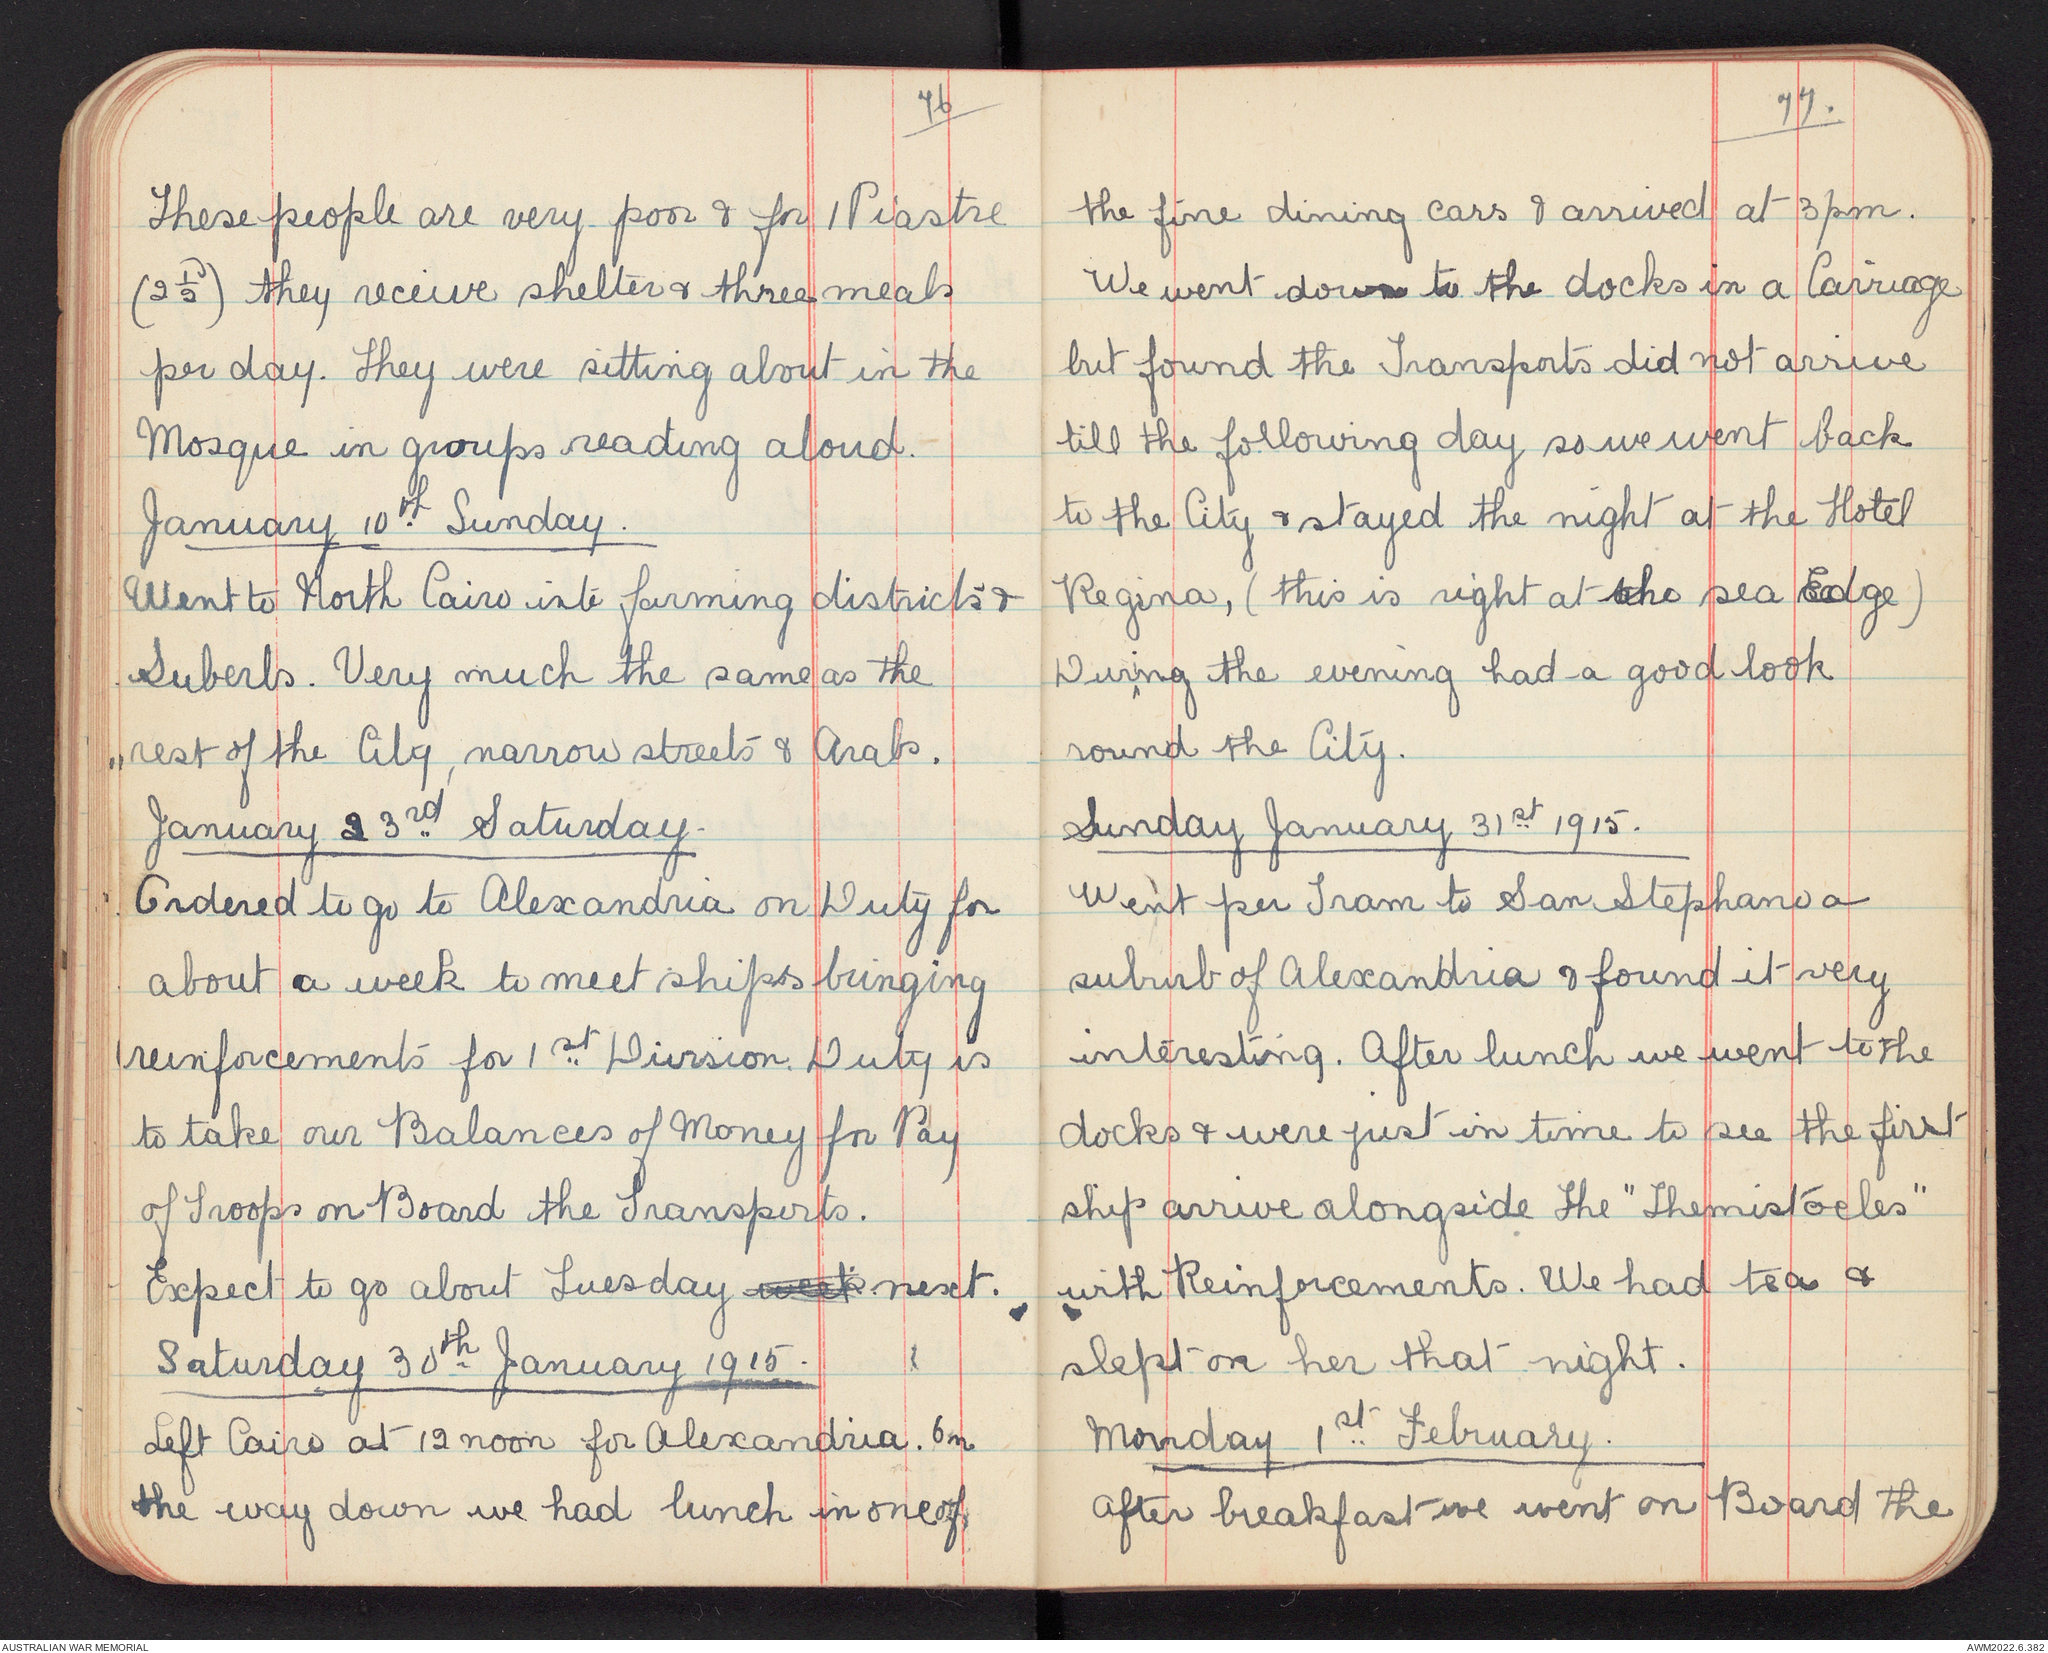 76
These people are very poor & for 1 Piastre
(2 1/2 D) they receive shelter & three meals
per day. They were sitting about in the
Mosque in groups reading aloud.
January 10th Sunday.
Went to North Cairo into farming districts &
Suberbs. Very much the same as the
rest of the City, narrow streets & Arabs.
January 23rd Saturday.
Ordered to go to Alexandria on Duty for
about a week to meet ships bringing
reinforcements for 1st Division. Duty is
to take our Balances of Money for Pay
of Troops on Board the Transports.
Expect to go about Tuesday week next.
Saturday 30th January 1915.
Left Cairo at 12 noon for Alexandria. On
the way down we had lunch in one of
77.
the fine dining cars & arrived at 3pm.
We went down to the docks in a Carriage
but found the Transports did not arrive
till the following day so we went back
to the City & stayed the night at the Hotel
Regina, (this is right at the sea Edge)
During the evening had a good look
round the City.
Sunday January 31st 1915.
Went per Tram to San Stephano a
suburb of Alexandria & found it very
interesting. After lunch we went to the
docks & were just in time to see the first
ship arrive alongside the "Themistocles"
with Reinforcements. We had tea &
slept on her that night.
Monday 1st February.
After breakfast we went on Board the
AUSTRALIAN WAR MEMORIAL
AWM2022.6.382